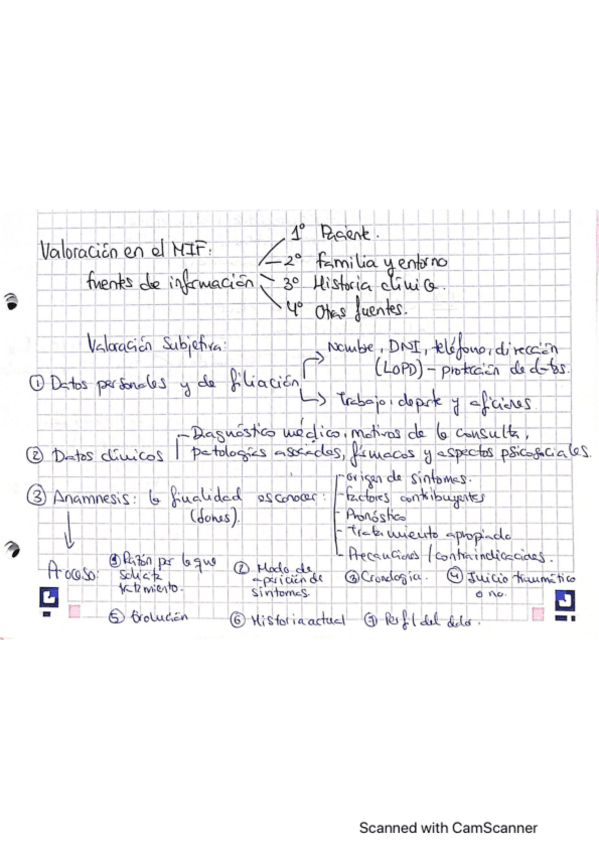 1º Paciente.
Valoración en el MIF:
2º familia y entorno
fuentes de información
3º Historia clínica.
4º Otras fuentes.
Valoración Subjetiva:
Nombre, DNI, teléfono, dirección
(LOPD) - protección de datos.
① Datos personales y de filiación
Trabajo, deporte y aficiones
② Datos clínicos
- Diagnóstico médico, motivos de la consulta,
patologías asociadas, fármacos y aspectos psicosociales.
③ Anamnesis: la finalidad es conocer:
(Jones).
- Origen de síntomas.
- Factores contribuyentes
- Pronóstico
- Tratamiento apropiado
- Precauciones / contraindicaciones.
Acceso:
① Razón por la que
solicita
tratamiento.
② Modo de
aparición de
síntomas.
③ Cronología.
④ Inicio traumático
o no.
⑤ Evolución
⑥ Historia actual
⑦ Perfil del dolor.
Scanned with CamScanner